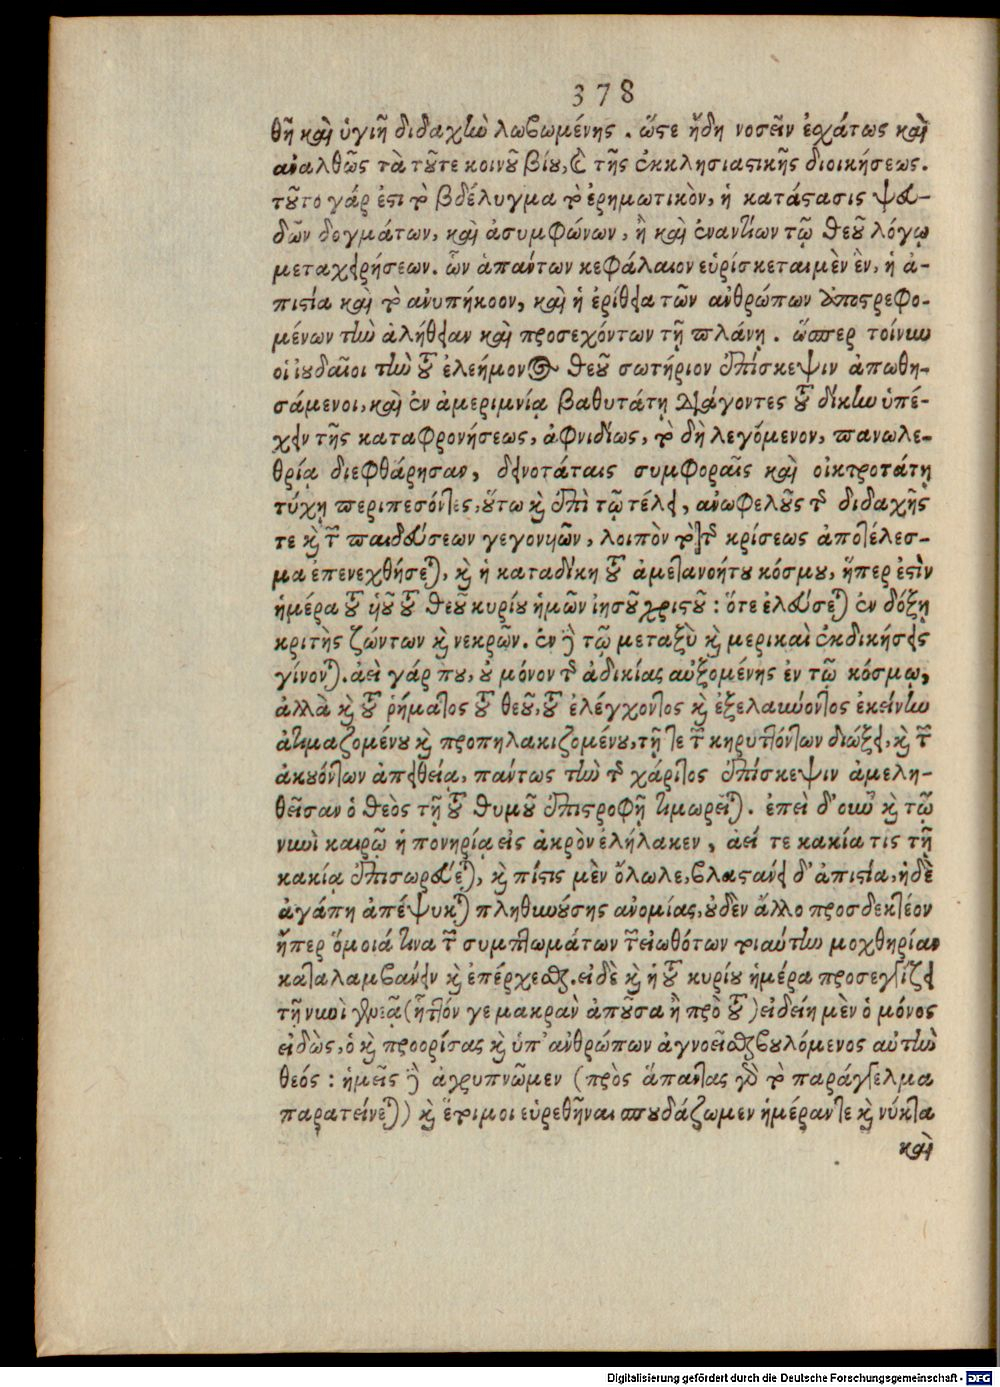 378
θῆ καὶ ὑγιῆ διδαχὴν λωβωμένης. ὥςε ἤδη νοσεῖν ἐχάτως καὶ
ἀναλθῶς τὰ τοῦτε κοινοῦ βίου, καὶ τῆς ἐκκλησιαςικῆς διοικήσεως.
τοῦτο γάρ ἐςι τὸ βδέλυγμα τὸ ἐρημωτικὸν, ἡ κατάςασις ψευ-
δῶν δογμάτων, καὶ ἀσυμφώνων, ἢ καὶ ἐναντίων τῷ θεοῦ λόγῳ
μεταχειρήσεων. ὧν ἁπάντων κεφάλαιον εὑρίσκεται μὲν ἓν, ἡ ἀ-
πιςία καὶ τὸ ἀνυπήκοον, καὶ ἡ ἐρίθεια τῶν ἀνθρώπων ἀποςρεφο-
μένων τὴν ἀλήθειαν καὶ προσεχόντων τῇ πλάνῃ. ὥσπερ τοίνυν
οἱ ἰουδαῖοι τὴν τοῦ ἐλεήμονος θεοῦ σωτήριον ἐπίσκεψιν ἀπωθη-
σάμενοι, καὶ ἐν ἀμεριμνίᾳ βαθυτάτῃ διάγοντες τοῦ δίκην ὑπέ-
χειν τῆς καταφρονήσεως, ἀφνιδίως, τὸ δὴ λεγόμενον, πανωλε-
θρίᾳ διεφθάρησαν, δεινοτάταις συμφοραῖς καὶ οἰκτροτάτῃ
τύχῃ περιπεσόντες, οὕτω καὶ ἐπὶ τῷ τέλει, ἀνωφελοῦς τῆς διδαχῆς
τε καὶ τῶν παιδεύσεων γεγονυιῶν, λοιπὸν τὸ τῆς κρίσεως ἀποτέλεσ-
μα ἐπενεχθήσεται, καὶ ἡ καταδίκη τοῦ ἀμετανοήτου κόσμου, ἥπερ ἐςὶν
ἡμέρα τοῦ υἱοῦ τοῦ θεοῦ κυρίου ἡμῶν ἰησοῦ χριςοῦ: ὅτε ἐλεύσεται ἐν δόξῃ
κριτὴς ζώντων καὶ νεκρῶν. ἐν δὲ τῷ μεταξὺ καὶ μερικαὶ ἐκδικήσεις
γίνονται. ἀεὶ γάρ που, οὐ μόνον τῆς ἀδικίας αὐξομένης ἐν τῷ κόσμῳ,
ἀλλὰ καὶ τοῦ ῥήματος τοῦ θεοῦ, τοῦ ἐλέγχοντος καὶ ἐξελαύνοντος ἐκείνην
ἀτιμαζομένου καὶ προπηλακιζομένου, τῇ τε τῶν κηρυττόντων διώξει, καὶ τῶν
ἀκουόντων ἀπειθείᾳ, πάντως τὴν τῆς χάριτος ἐπίσκεψιν ἀμελη-
θεῖσαν ὁ θεὸς τῇ τοῦ θυμοῦ ἐπιςροφῇ τιμωρεῖται. ἐπεὶ δ' οὖν καὶ τῷ
νυνὶ καιρῷ ἡ πονηρία εἰς ἀκρὸν ἐλήλακεν, ἀεί τε κακία τις τῇ
κακίᾳ ἐπισωρεύεται, καὶ πίςις μὲν ὄλωλε, βλαςάνει δ' ἀπιςία, ἡδὲ
ἀγάπη ἀπέψυκται πληθυνούσης ἀνομίας, οὐδὲν ἄλλο προσδεκτέον
ἤπερ ὅμοιά τινα τῶν συμπτωμάτων τῶν εἰωθότων τοιαύτην μοχθηρίαν
καταλαμβάνειν καὶ ἐπέρχεσθαι. εἰδὲ καὶ ἡ τοῦ κυρίου ἡμέρα προσεγγίζει
τῇ νυνὶ γενεᾷ (ἧττόν γε μακρὰν ἀποῦσα ἢ πρὸ τοῦ) εἰδείη μὲν ὁ μόνος
εἰδὼς, ὁ καὶ προορίσας καὶ ὑπ' ἀνθρώπων ἀγνοεῖσθαι βουλόμενος αὐτὴν
θεός: ἡμεῖς δὲ ἀγρυπνῶμεν (πρὸς ἅπαντας γὰρ τὸ παράγγελμα
παρατείνεται) καὶ ἕτοιμοι εὑρεθῆναι σπουδάζωμεν ἡμέραν τε καὶ νύκτα
καὶ
Digitalisierung gefördert durch die Deutsche Forschungsgemeinschaft - DFG